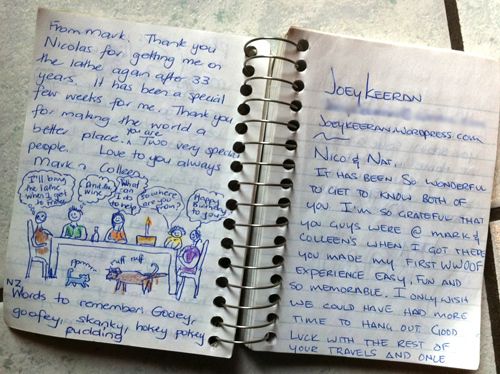 From Mark. Thank you
Nicolas for getting me on
the lathe again after 33
years. It has been a special
few weeks for me. Thank you
for making the world a
better place. you are Two very special
people. Love to you always
Mark & Colleen
I'll bring
the lathe
when I get
to France
And the
wine
What
can
I do
to help
So where
are you
from?
Happy
to you
grrrr..
ruff ruff
NZ
Words to remember: Gooey,
goofey, skanky, hokey pokey
pudding
JOEY KEERAN
JOEYKEERAN.WORDPRESS.COM
NICO & NAT...
IT HAS BEEN SO WONDERFUL
TO GET TO KNOW BOTH OF
YOU. I'M SO GRATEFUL THAT
YOU GUYS WERE @ MARK &
COLLEEN'S WHEN I GOT THERE
YOU MADE MY FIRST WWOOF
EXPERIENCE EASY, FUN AND
SO MEMORABLE. I ONLY WISH
WE COULD HAVE HAD MORE
TIME TO HANG OUT. GOOD
LUCK WITH THE REST OF
YOUR TRAVELS AND ONCE